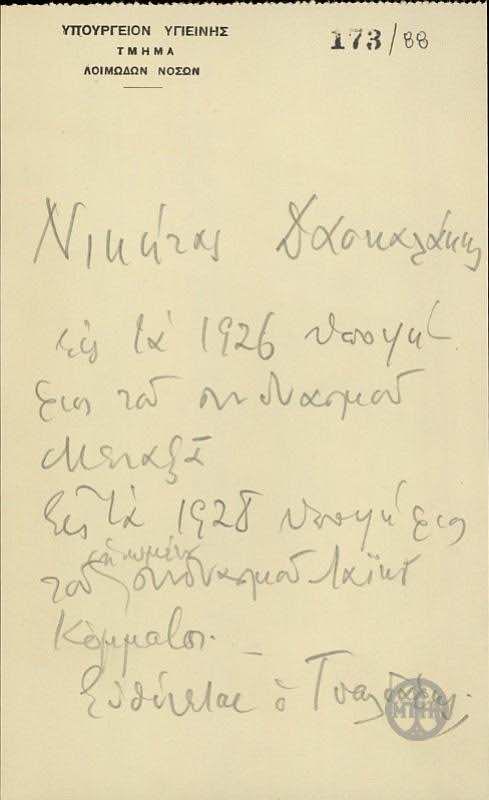 ΥΠΟΥΡΓΕΙΟΝ ΥΓΙΕΙΝΗΣ
ΤΜΗΜΑ
ΛΟΙΜΩΔΩΝ ΝΟΣΩΝ
173/88
Νικήτας Δασκαλάκης
εις τα 1926 υποψή
φιος του συνδυασμού
Μεταξά
Εις τα 1928 υποψήφιος
ηνωμένου
του συνδυασμού Λαϊκού
Κόμματος. —
Ευθύνεται ο Τσαλδάρης.